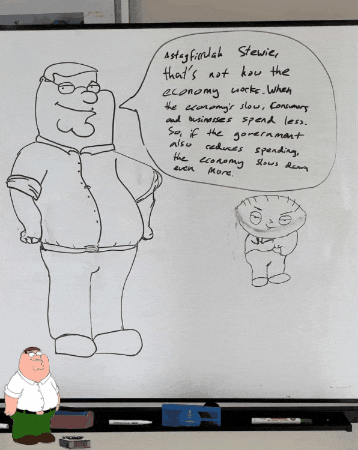 Astagfirullah Stewie,
that's not how the
economy works. When
the economy's slow, consumers
and businesses spend less.
So, if the government
also reduces spending,
the economy slows down
even more.